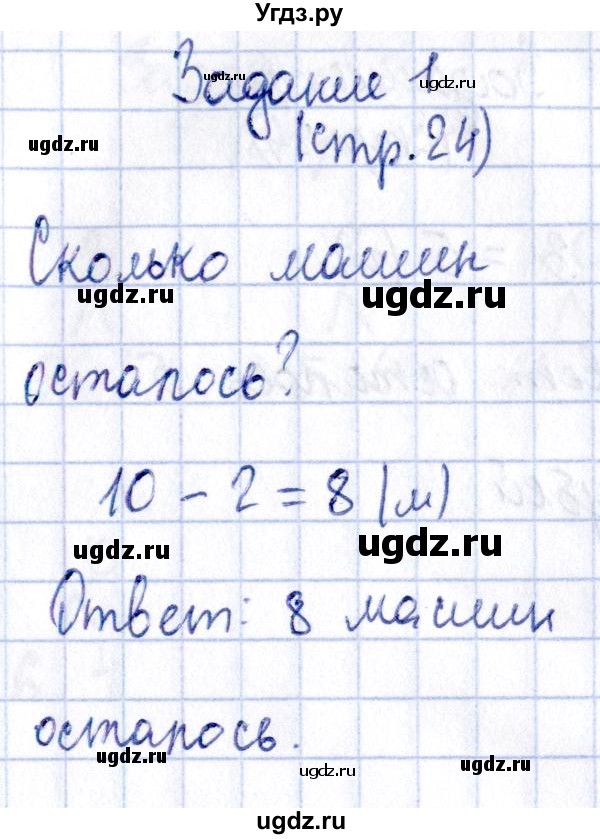 Угдз.ру
Задание 1
(стр. 24)
Сколько машин
осталось?
10 - 2 = 8 (м)
Ответ: 8 машин
осталось.
ugdz.ru
ugdz.ru
ugdz.ru
ugdz.ru
ugdz.ru
ugdz.ru
ugdz.ru
ugdz.ru
ugdz.ru
ugdz.ru
ugdz.ru
ugdz.ru